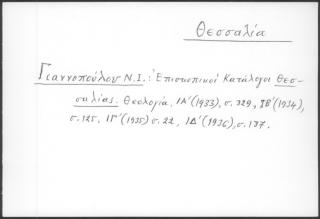 Θεσσαλία
Γιαννοπούλου Ν.Ι.: Ἐπισκοπικοὶ Κατάλογοι Θεσ-
σαλίας. Θεολογία, ΙΑ´(1933), σ. 329, ΙΒ´(1934),
σ. 125, ΙΓ´(1935) σ. 22, ΙΔ´(1936), σ. 137.